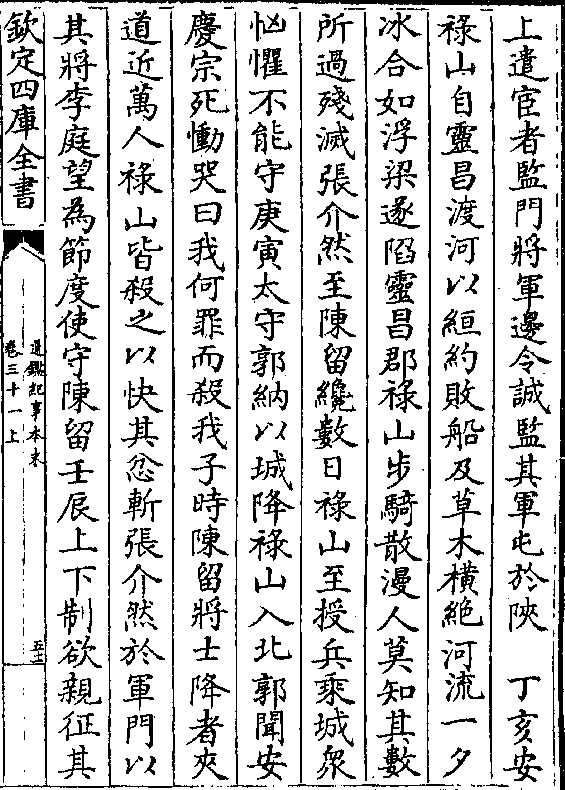 上遣宦者監門將軍邊令誠監其軍屯於陜　丁亥安
祿山自靈昌渡河以絙約敗船及草木橫絶河流一夕
冰合如浮梁遂䧟靈昌郡祿山步騎散漫人莫知其數
所過殘滅張介然至陳留纔數日祿山至授兵乘城衆
忷懼不能守庚寅太守郭納以城降祿山入北郭聞安
慶宗死慟哭曰我何罪而殺我子時陳留將士降者夾
道近萬人祿山皆殺之以快其忿斬張介然於軍門以
其將李庭望為節度使守陳留壬辰上下制欲親征其
欽定四庫全書
通鑑紀事本末
卷三十一上
五十